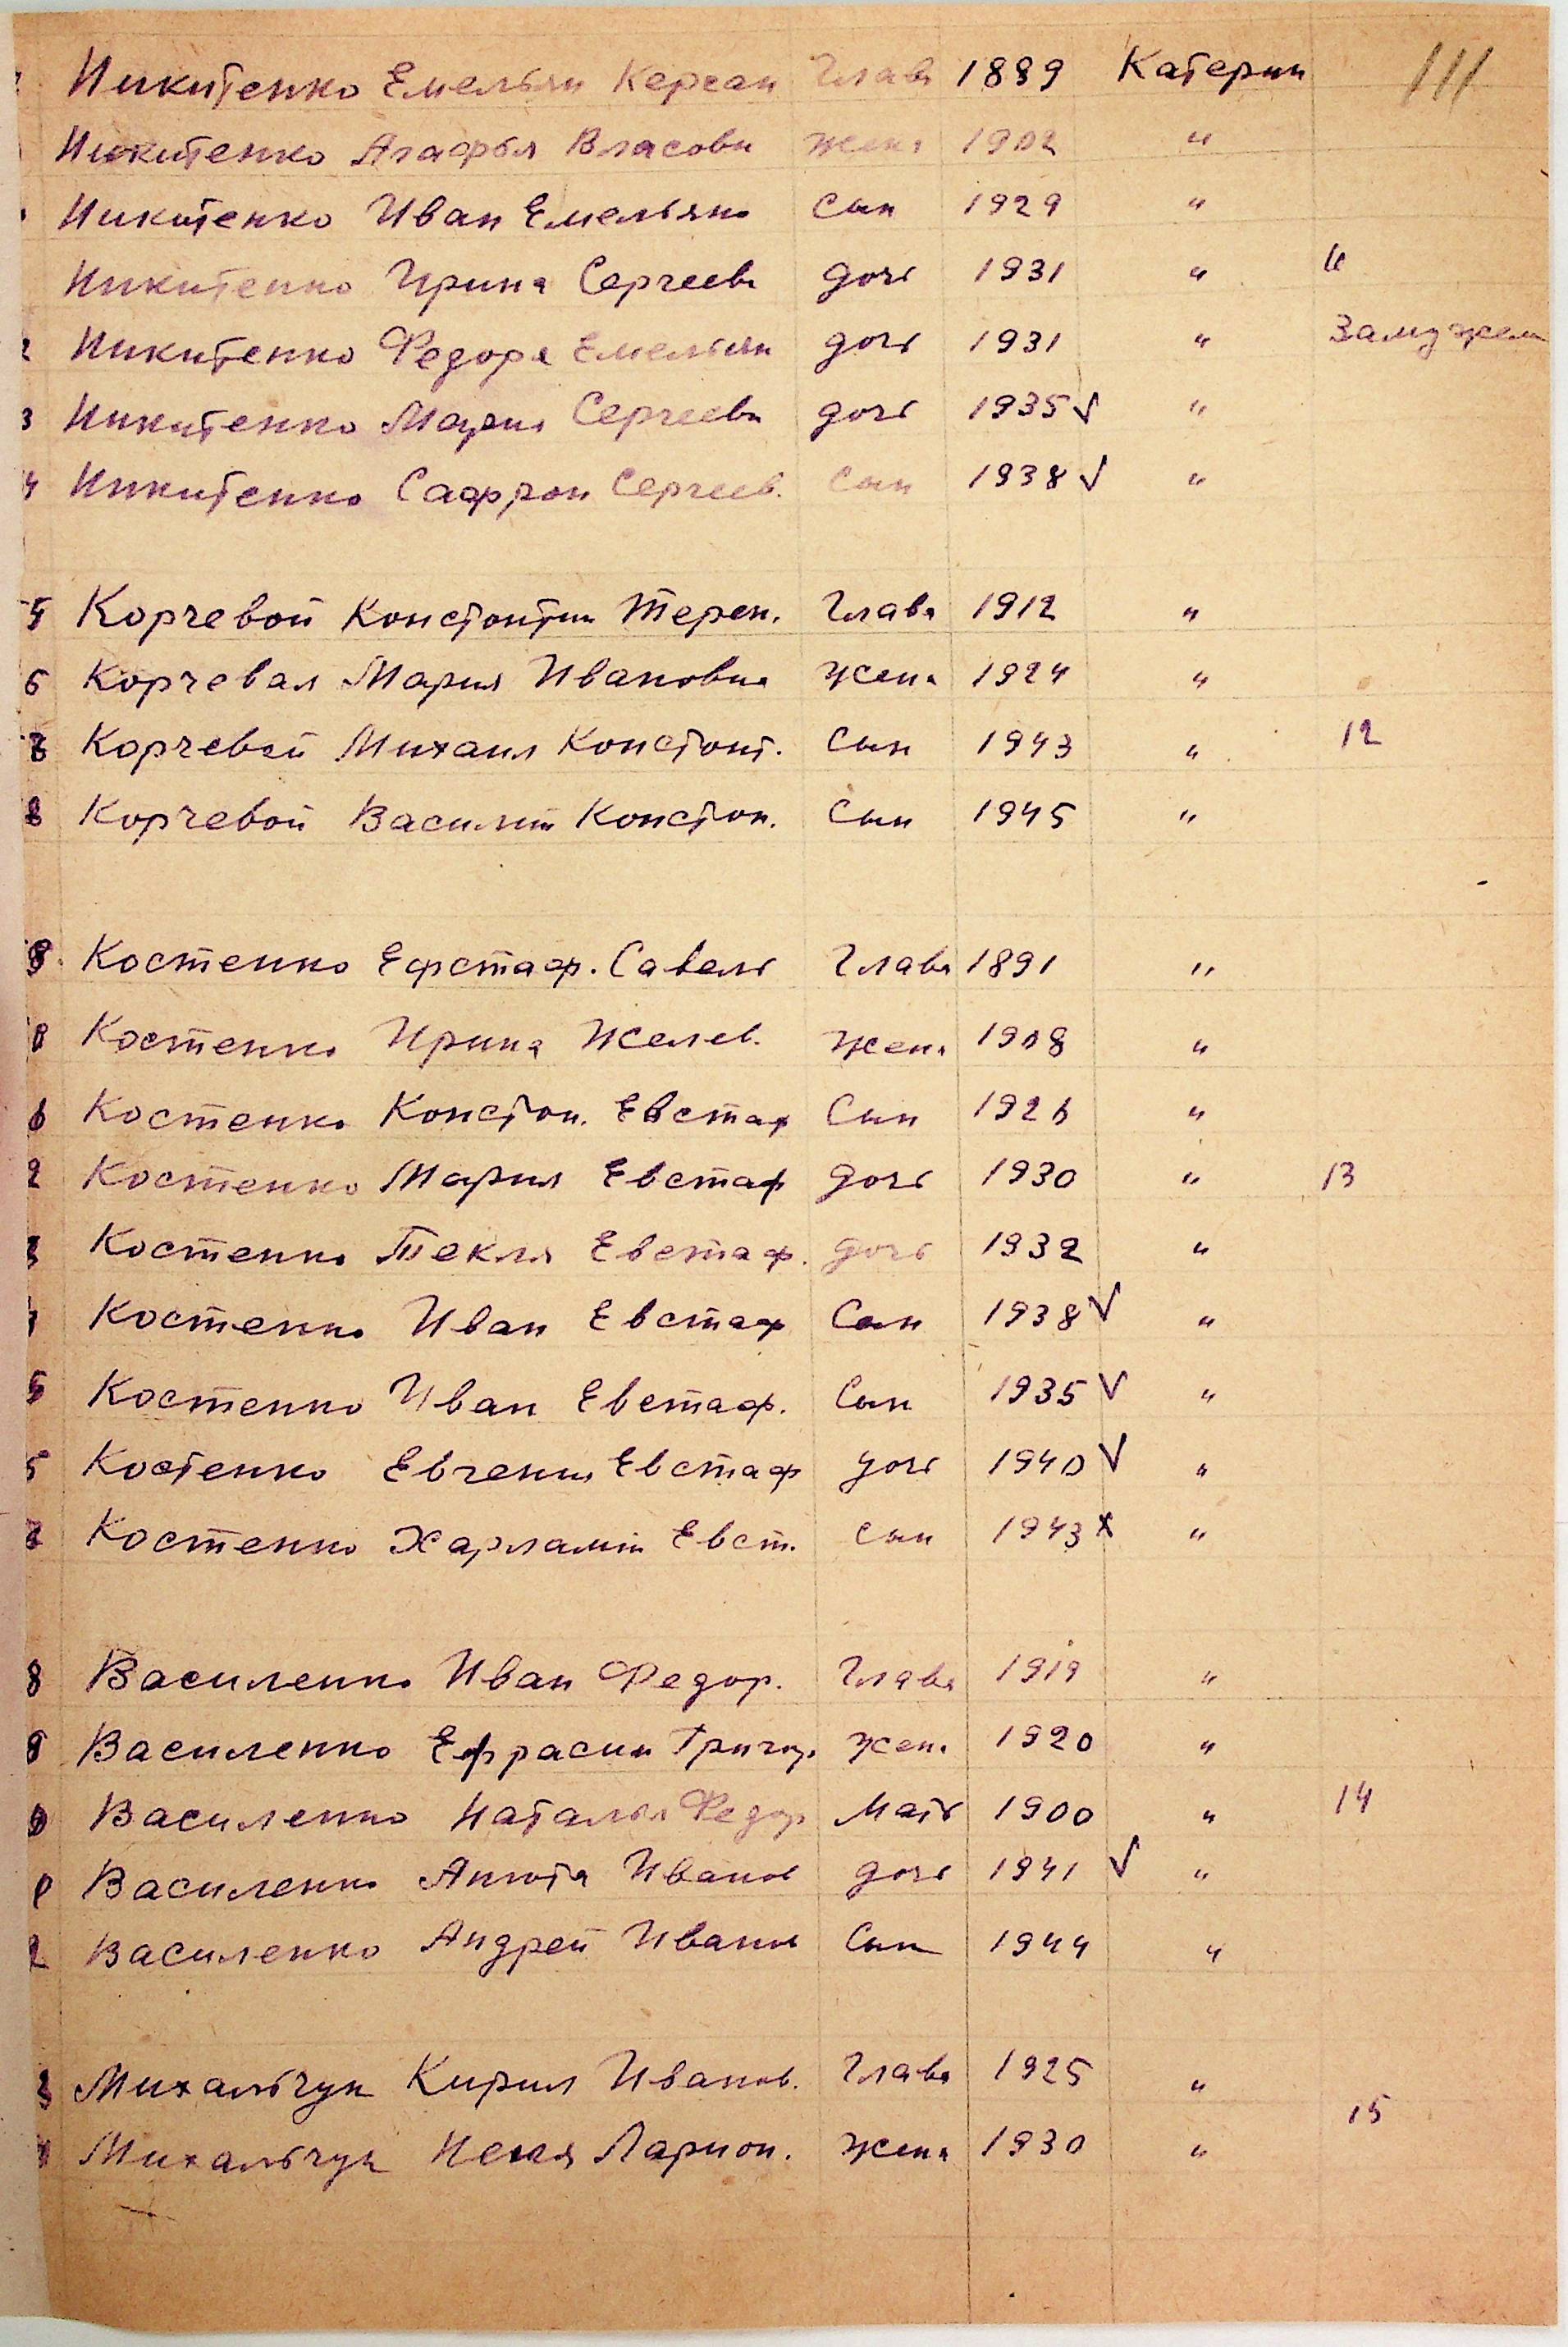 Никитенко Емельян Керсан Глава 1889 Катерин 111
Никитенко Агафья Власовн жена 1902 "
Никитенко Иван Емельяно сын 1929 "
Никитенко Ирина Сергеевн дочь 1931 " 11
2 Никитенко Федора Емельян дочь 1931 " Замужем
3 Никитенко Мария Сергеевн дочь 1935 √ "
4 Никитенко Сафрон Сергеев. сын 1938 √ "
5 Корчевой Константин Терен. Глава 1912 "
6 Корчевая Мария Ивановна жена 1924 "
7 Корчевой Михаил Констант. сын 1943 " 12
8 Корчевой Василий Констан. сын 1945 "
9 Костенко Ефстаф. Савель Глава 1891 "
0 Костенко Ирина жена 1908 "
Костенко Констан. Евстаф Сын 1926 "
2 Костенко Мария Евстаф дочь 1930 " 13
3 Костенко Текля Евстаф. дочь 1932 "
Костенко Иван Евстаф Сын 1938 √ "
5 Костенко Иван Евстаф. Сын 1935 √ "
Костенко Евгения Евстаф дочь 1940 √ "
Костенко Харлампи Евст. сын 1943 x "
8 Василенко Иван Федор. Глава 1919 "
9 Василенко Ефрасин Григор. жена 1920 "
0 Василенко Наталья Федор Мать 1900 " 14
Василенко Анюта Иванов дочь 1941 √ "
2 Василенко Андрей Иванов Сын 1944 "
3 Михальчук Кирил Иванов. Глава 1925 "
15
Михальчук Ларион. жена 1930 "